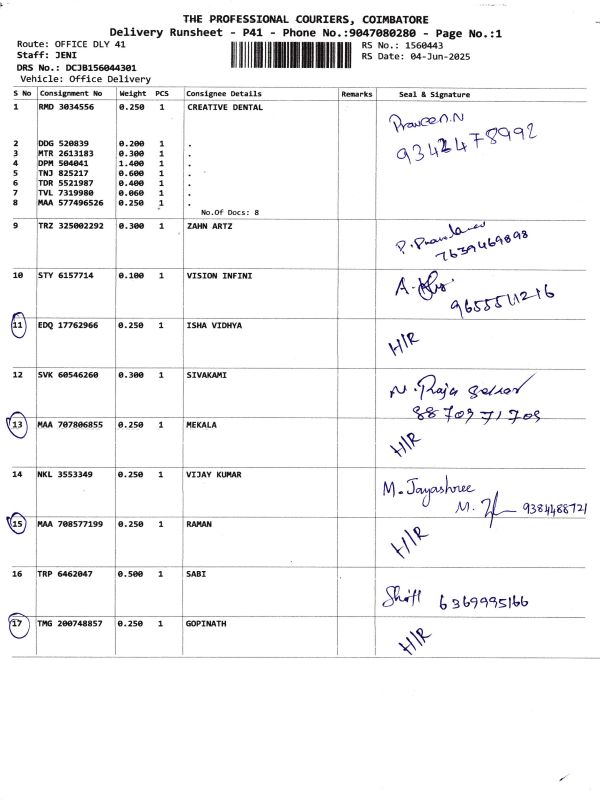 THE PROFESSIONAL COURIERS, COIMBATORE
Delivery Runsheet - P41 - Phone No.:9047080280 - Page No.:1
Route: OFFICE DLY 41
Staff: JENI
DRS No.: DCJB156044301
Vehicle: Office Delivery
RS No.: 1560443
RS Date: 04-Jun-2025
S No Consignment No Weight PCS Consignee Details Remarks Seal & Signature
1 RMD 3034556 0.250 1 CREATIVE DENTAL Praveen.N
2 DDG 520839 0.200 1 . 9342478992
3 MTR 2613183 0.300 1 .
4 DPM 504041 1.400 1 .
5 TNJ 825217 0.600 1 .
6 TDR 5521987 0.400 1 .
7 TVL 7319980 0.060 1 .
8 MAA 577496526 0.250 1 .
No.Of Docs: 8
9 TRZ 325002292 0.300 1 ZAHN ARTZ P.
7639469898
10 STY 6157714 0.100 1 VISION INFINI A.
9655511216
11 EDQ 17762966 0.250 1 ISHA VIDHYA H/R
12 SVK 60546260 0.300 1 SIVAKAMI N. Raja
8870971709
13 MAA 707806855 0.250 1 MEKALA H/R
14 NKL 3553349 0.250 1 VIJAY KUMAR M. Jayashree
M. 9384488721
15 MAA 708577199 0.250 1 RAMAN H/R
16 TRP 6462047 0.500 1 SABI 6369995166
17 TMG 200748857 0.250 1 GOPINATH H/R